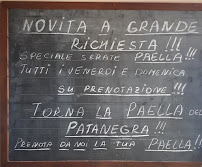 NOVITA A GRANDE
RICHIESTA !!!
SPECIALE SERATE PAELLA!!!
TUTTI I VENERDI E DOMENICA
SU PRENOTAZIONE !!!
TORNA LA PAELLA DEL
PATANEGRA!!!
PRENOTA DA NOI LA TUA PAELLA!!